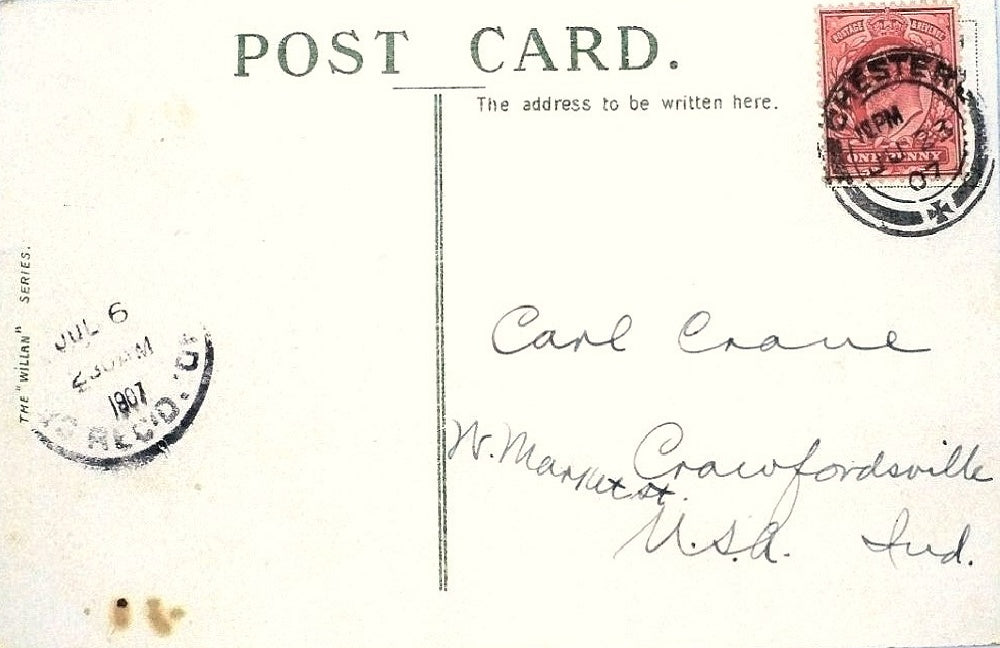 POST CARD.
The address to be written here.
POSTAGE REVENUE
ONE PENNY
CHESTER
PM
07
THE "WILLAN" SERIES.
JUL 6
230 AM
1907
REC'D.
Carl Crane
W. Market st.
Crawfordsville
U.S.A. Ind.